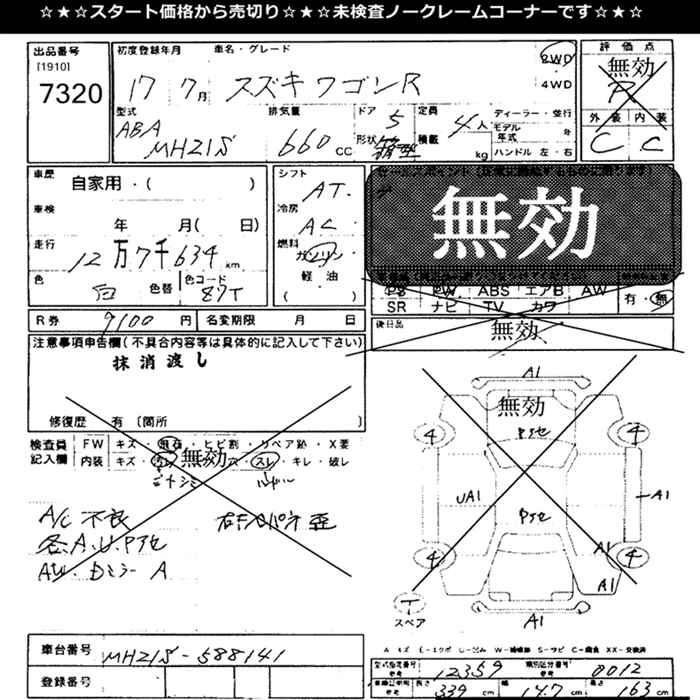 ☆★☆★スタート価格から売切り☆★☆★未検査ノークレームコーナーです☆★☆
出品番号
[1910]
7320
初度登録年月 車名・グレード
17 7月 スズキ ワゴンR
2WD
4WD
評価点
無効
R
外装 内装
C C
型式
ABA
MH21S
排気量
660 cc
ドア 5
形状 箱型
定員 4人
積載 kg
ディーラー・並行
モデル年式 年
ハンドル 左・右
車歴
自家用・( )
車検
年 月( 日)
走行
12万7千634 km
色
白
色替
色コード
87T
シフト
AT.
冷房
AC
燃料
ガソリン
軽油
( )
無効
PS PW ABS エアB AW
SR ナビ TV カワ
有・無
後日品
無効
R券 9100 円 名変期限 月 日
注意事項申告欄(不具合内容等は具体的に記入して下さい)
抹消渡し
修復歴 有 〔箇所 〕
検査員記入欄
FW キズ・飛石・ヒビ割・リペア跡・X要
内装 キズ・ ・穴・スレ・キレ・破レ
無効
A/C 不良
各.A.U.Pアセ
A
無効
A1
Pアセ
4
4
UA1
A1
Pアセ
4
A1
4
A1
T
スペア
A1
車台番号
MH21S-588141
登録番号
型式指定番号 12359
類別区分番号 0012
長さ 339 cm
幅 147 cm
高さ 163 cm